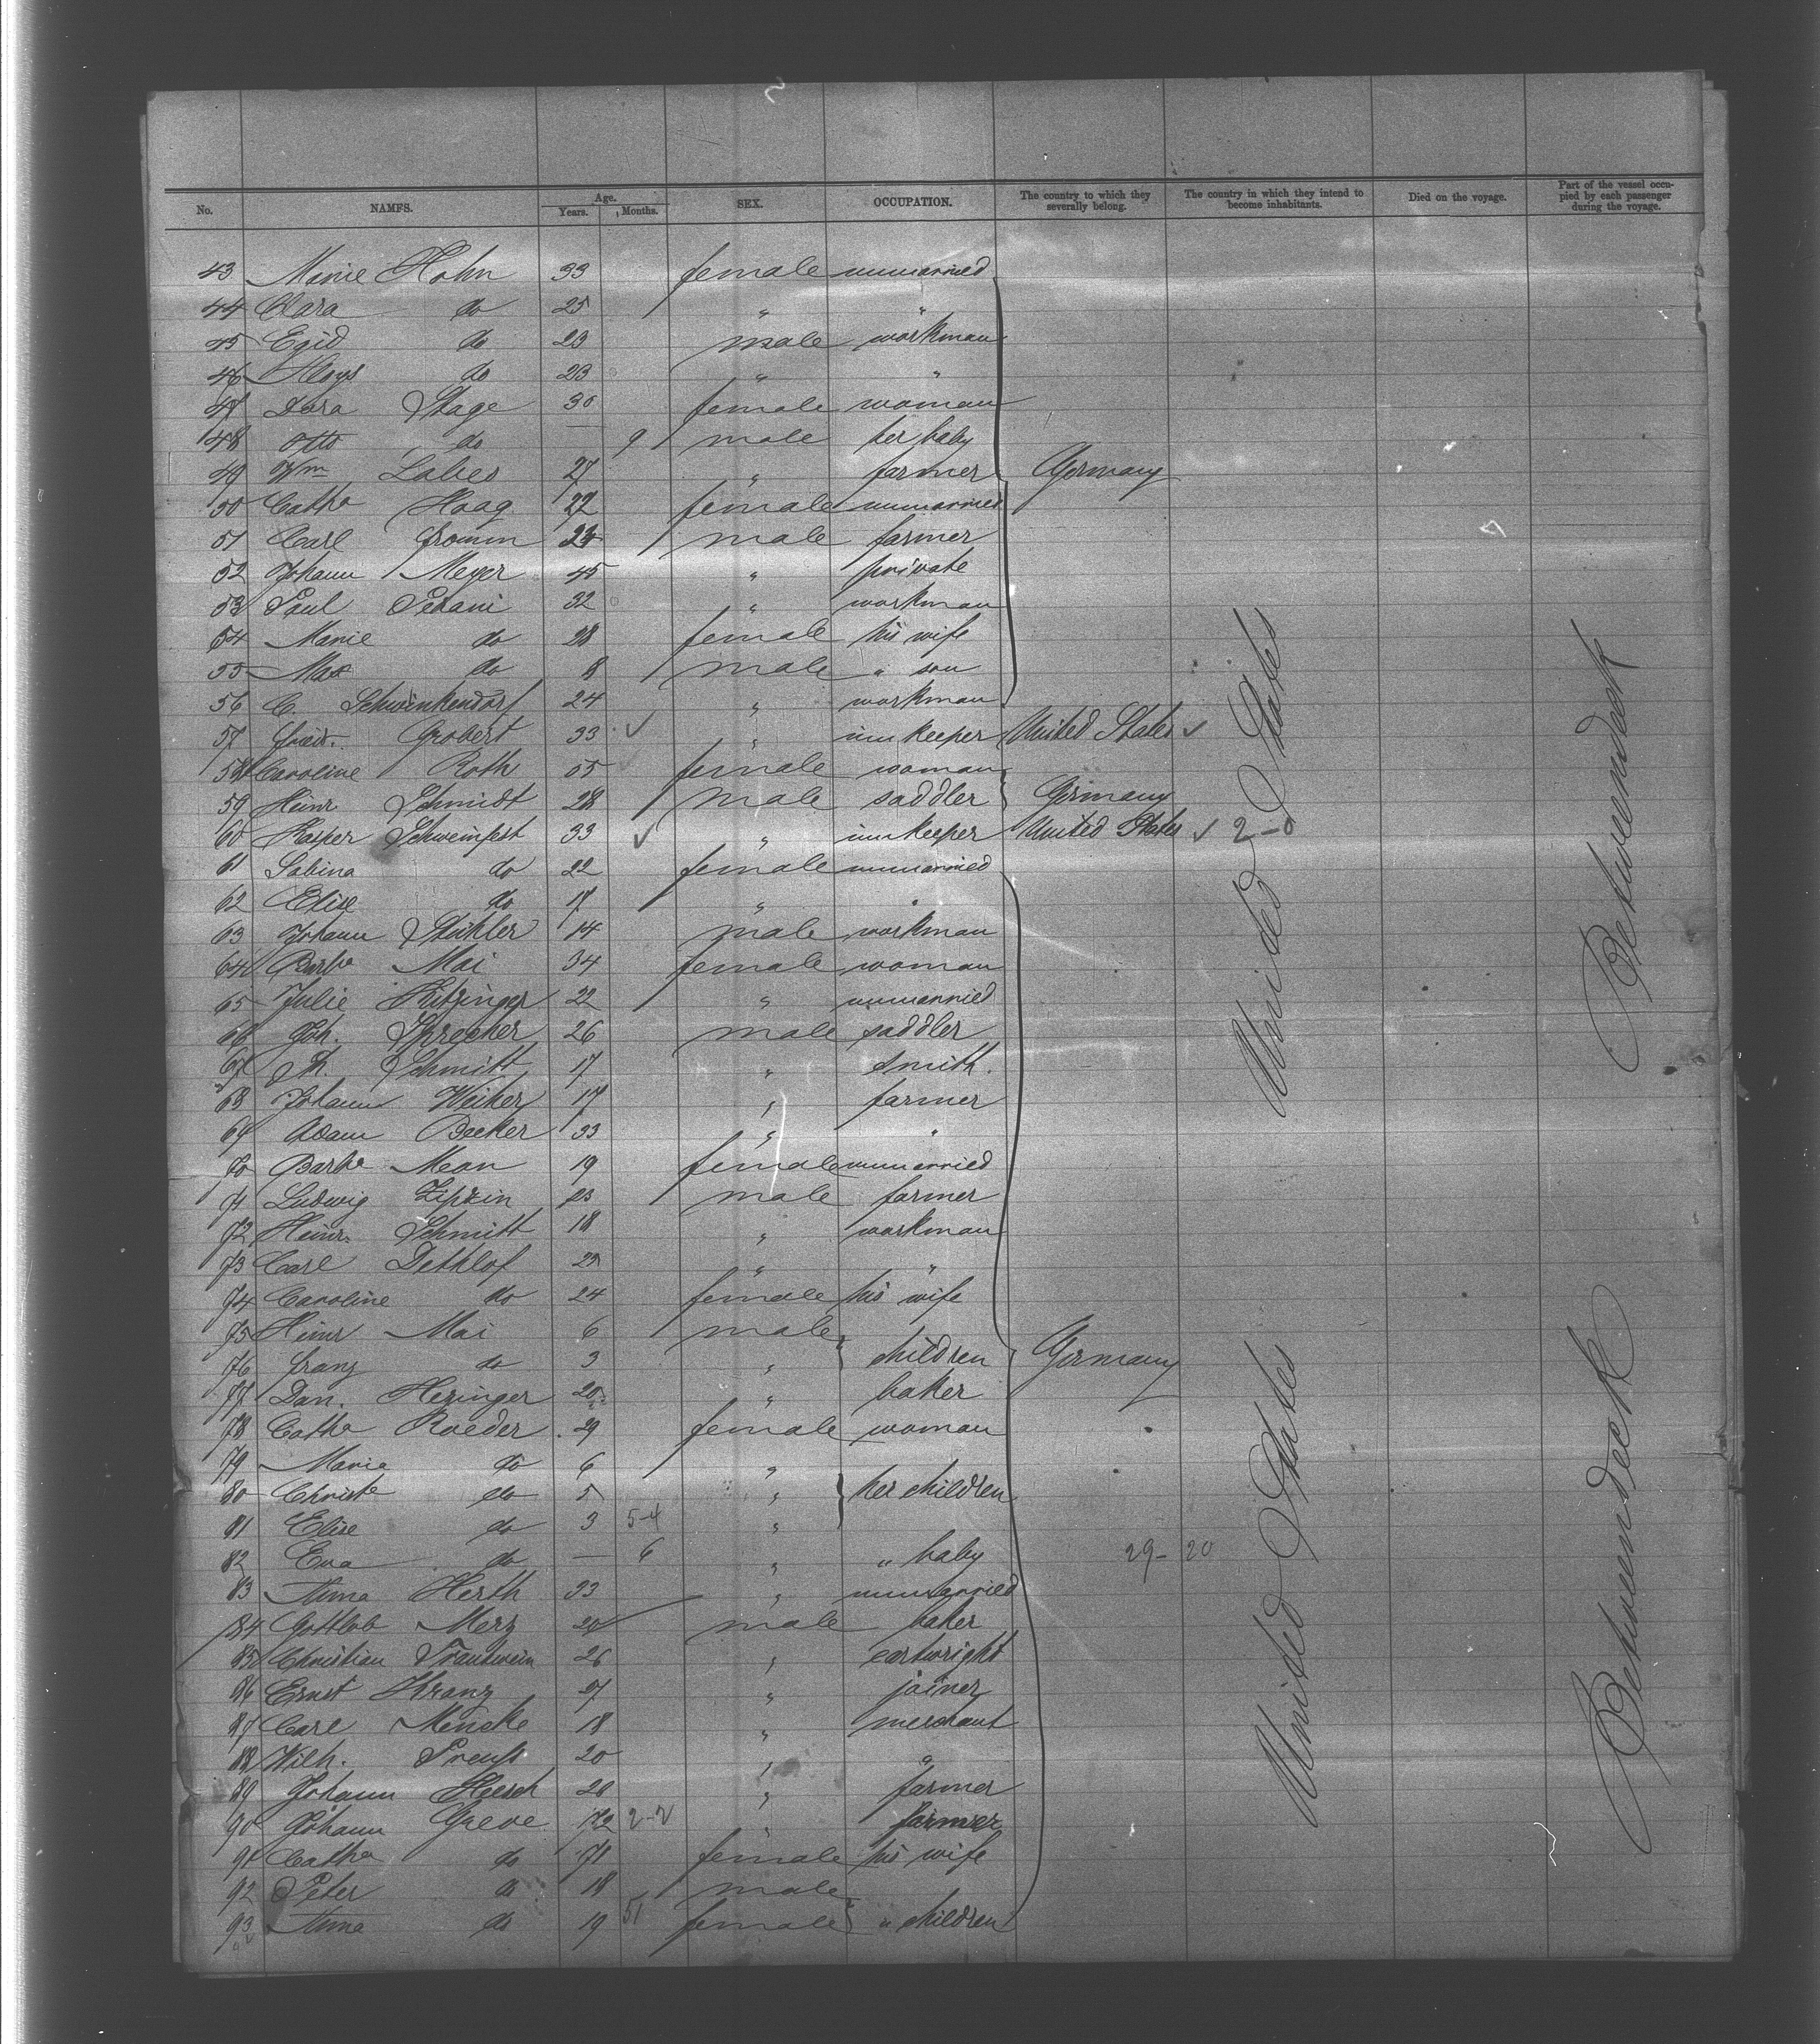 No. NAMES. Age. Years. Months. SEX. OCCUPATION. The country to which they severally belong. The country in which they intend to become inhabitants. Died on the voyage. Part of the vessel occupied by each passenger during the voyage.
43 Marie Hahn 33 female unmarried
44 Clara do 25 " "
45 Egid do 23 male workman
46 Aloys do 23 " "
47 Dora Stage 30 female woman
48 Otto do — 9 male her baby
49 Wm Labes 27 " farmer Germany
50 Cathe Haag 22 female unmarried
51 Carl Fromm 24 male farmer
52 Johann Meyer 45 " private
53 Paul 32 " workman
54 Marie do 28 female his wife
55 Max do 8 male " son
56 C. Schwinkendorf 24 " workman
57 Fried. Grobert 33 " innkeeper United States
58 Caroline Roth 55 female woman
59 Heinr Schmidt 28 male saddler Germany
60 Kasper Schweinfest 33 " innkeeper United States 2-0
61 Sabina do 22 female unmarried
62 Elise do 17 " "
63 Johann Stühler 14 male workman
64 Barbe Mai 34 female woman
65 Julie Kitzinger 22 " unmarried
66 Joh. Sprecher 26 male saddler
67 Schmitt 17 " smith.
68 Johann Weiker 17 " farmer
69 Adam Becker 33 " "
70 Barbe Mean 19 female unmarried
71 Ludwig Zipzin 23 male farmer
72 Heinr. Schmitt 18 " workman
73 Carl Dethlof 25 " "
74 Caroline do 24 female his wife
75 Heinr Mai 6 male
76 Franz do 3 " children Germany
77 Dan. Hezinger 20 " baker
78 Cathe Roeder 29 female woman
79 Marie do 6 "
80 Christe do 5 " her children
81 Elise do 3 5-4 "
82 Eva do — 6 " " baby 29-20
83 Anna Herth 33 " unmarried
84 Gottlob Merz 20 male baker
85 Christian Trautwein 26 " cartwright
86 Ernst Kranz 27 " joiner
87 Carl Mencke 18 " merchant
88 Wilh. Preuß 20 " "
89 Johann Heesch 20 " farmer
90 Johann Greve 72 2-2 farmer
91 Cathe do 71 female his wife
92 Peter do 18 male
93 Anna do 19 51 female " children
United States
United States
Betweendeck
Betweendeck